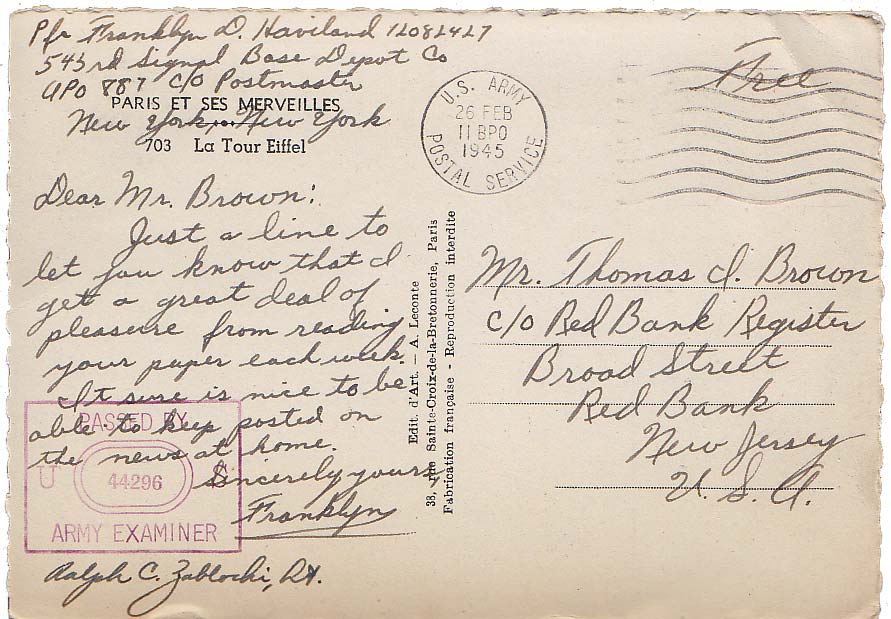 Pfc Franklyn D. Haviland 12082427
543rd Signal Base Depot Co
APO 887 c/o Postmaster
New York, New York
PARIS ET SES MERVEILLES
703 La Tour Eiffel
U.S. ARMY
26 FEB
11 BPO
1945
POSTAL SERVICE
Free
Dear Mr. Brown:
Just a line to
let you know that I
get a great deal of
pleasure from reading
your paper each week.
It sure is nice to be
able to keep posted on
the news at home.
Sincerely yours
Franklyn
PASSED BY
U S
44296
ARMY EXAMINER
Ralph C. Zablocki,
Edit. d'Art. — A. Leconte
38, rue Sainte-Croix-de-la-Bretonnerie, Paris
Fabrication française - Reproduction interdite
Mr. Thomas I. Brown
c/o Red Bank Register
Broad Street
Red Bank
New Jersey
U. S. A.